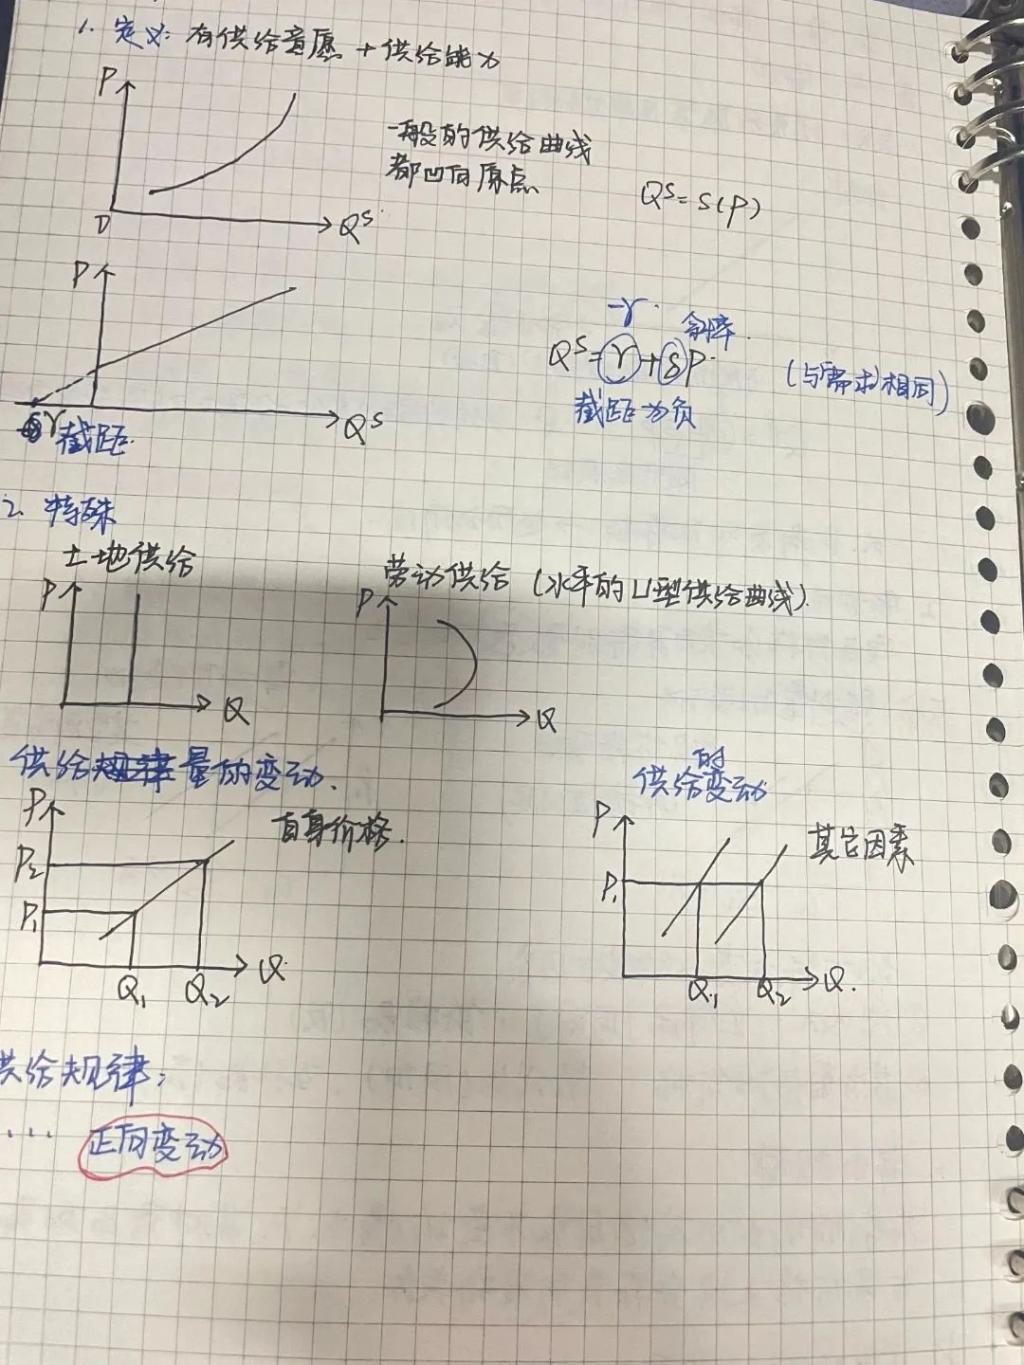 1. 定义: 有供给意愿 + 供给能力
P
O
Qˢ
一般的供给曲线
都凹向原点
Qˢ = S(P)
P
Qˢ
γ 截距
-γ
斜率
Qˢ = γ + δP
截距为负
(与需求相同)
2. 特殊
土地供给
P
Q
劳动供给 (水平的U型供给曲线)
P
Q
供给量的变动.
自身价格.
P
P₂
P₁
Q₁
Q₂
Q
供给的变动
其它因素
P
P₁
Q₁
Q₂
Q.
供给规律:
... 正向变动